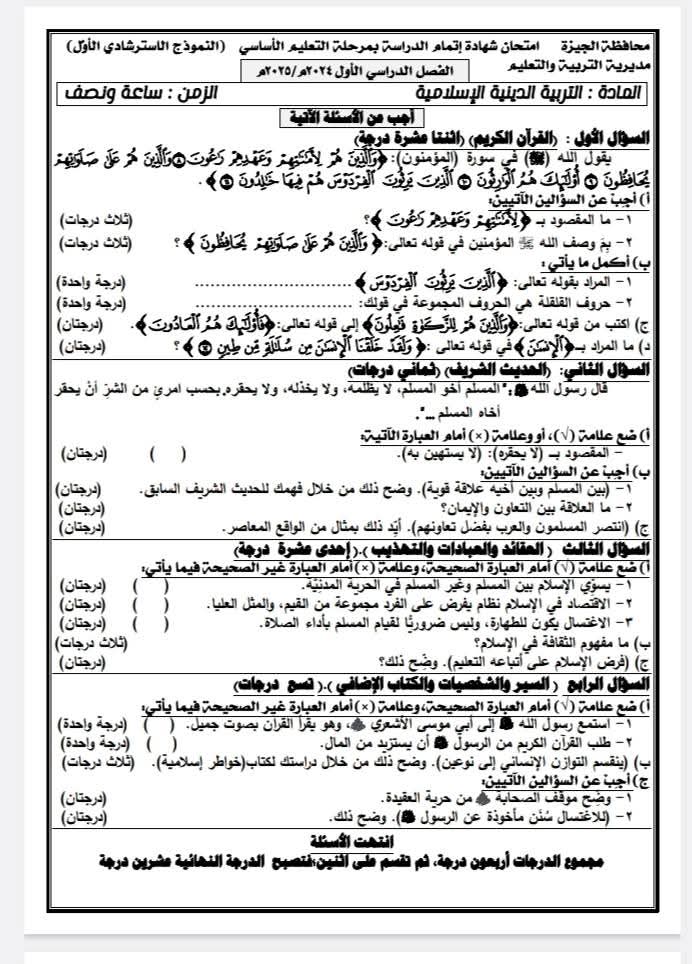 محافظة الجيزة امتحان شهادة إتمام الدراسة بمرحلة التعليم الأساسي (النموذج الاسترشادي الأول)
مديرية التربية والتعليم
الفصل الدراسي الأول ٢٠٢٤م/٢٠٢٥م
المادة : التربية الدينية الإسلامية الزمن : ساعة ونصف
أجب عن الأسئلة الآتية
السؤال الأول : (القرآن الكريم) (اثنتا عشرة درجة)
يقول الله (ﷻ) في سورة (المؤمنون): ﴿وَالَّذِينَ هُمْ لِأَمَانَاتِهِمْ وَعَهْدِهِمْ رَاعُونَ ٨ وَالَّذِينَ هُمْ عَلَىٰ صَلَوَاتِهِمْ
يُحَافِظُونَ ٩ أُولَٰئِكَ هُمُ الْوَارِثُونَ ١٠ الَّذِينَ يَرِثُونَ الْفِرْدَوْسَ هُمْ فِيهَا خَالِدُونَ ١١﴾.
أ) أجب عن السؤالين الآتيين:
١- ما المقصود بـ ﴿لِأَمَانَاتِهِمْ وَعَهْدِهِمْ رَاعُونَ﴾؟ (ثلاث درجات)
٢- بِمَ وصف الله ﷻ المؤمنين في قوله تعالى: ﴿وَالَّذِينَ هُمْ عَلَىٰ صَلَوَاتِهِمْ يُحَافِظُونَ﴾؟ (ثلاث درجات)
ب) أكمل ما يأتي :
١- المراد بقوله تعالى: ﴿الَّذِينَ يَرِثُونَ الْفِرْدَوْسَ﴾ .............................. (درجة واحدة)
٢- حروف القلقلة هي الحروف المجموعة في قولك: .............................. (درجة واحدة)
ج) اكتب من قوله تعالى: ﴿وَالَّذِينَ هُمْ لِلزَّكَاةِ فَاعِلُونَ﴾ إلى قوله تعالى: ﴿فَأُولَٰئِكَ هُمُ الْعَادُونَ﴾. (درجتان)
د) ما المراد بـ ﴿الْإِنسَانَ﴾ في قوله تعالى : ﴿وَلَقَدْ خَلَقْنَا الْإِنسَانَ مِن سُلَالَةٍ مِّن طِينٍ ١٢﴾؟ (درجتان)
السؤال الثاني: (الحديث الشريف) (ثماني درجات)
قال رسول الله ﷺ: "المسلم أخو المسلم، لا يظلمه، ولا يخذله، ولا يحقره، بحسب امرئ من الشرِّ أن يحقر
أخاه المسلم ...".
أ) ضع علامة (√)، أو وعلامة (×) أمام العبارة الآتية:
- المقصود بـ (لا يحقره): (لا يستهين به). ( ) (درجتان)
ب) أجب عن السؤالين الآتيين:
١- (بين المسلم وبين أخيه علاقة قوية). وضح ذلك من خلال فهمك للحديث الشريف السابق. (درجتان)
٢- ما العلاقة بين التعاون والإيمان؟ (درجتان)
ج) (انتصر المسلمون والعرب بفضل تعاونهم). أيِّد ذلك بمثال من الواقع المعاصر. (درجتان)
السؤال الثالث ( العقائد والعبادات والتهذيب ).(إحدى عشرة درجة)
أ) ضع علامة (√) أمام العبارة الصحيحة، وعلامة (×) أمام العبارة غير الصحيحة فيما يأتي:
١- يسوِّي الإسلام بين المسلم وغير المسلم في الحرية المدنيَّة. ( ) (درجتان)
٢- الاقتصاد في الإسلام نظام يفرض على الفرد مجموعة من القيم، والمثل العليا. ( ) (درجتان)
٣- الاغتسال يكون للطهارة، وليس ضروريًّا لقيام المسلم بأداء الصلاة. ( ) (درجتان)
ب) ما مفهوم الثقافة في الإسلام؟ (ثلاث درجات)
ج) (فرض الإسلام على أتباعه التعليم). وضِّح ذلك؟ (درجتان)
السؤال الرابع ( السير والشخصيات والكتاب الإضافي ).( تسع درجات)
أ) ضع علامة (√) أمام العبارة الصحيحة، وعلامة (×) أمام العبارة غير الصحيحة فيما يأتي:
١- استمع رسول الله ﷺ إلى أبي موسى الأشعري، وهو يقرأ القرآن بصوت جميل. ( ) (درجة واحدة)
٢- طلب القرآن الكريم من الرسول ﷺ أن يستزيد من المال. ( ) (درجة واحدة)
ب) (ينقسم التوازن الإنساني إلى نوعين). وضح ذلك من خلال دراستك لكتاب(خواطر إسلامية). (ثلاث درجات)
ج) أجب عن السؤالين الآتيين:
١- وضِّح موقف الصحابة من حرية العقيدة. (درجتان)
٢- (للاغتسال سُنَن مأخوذة عن الرسول ﷺ). وضح ذلك. (درجتان)
انتهت الأسئلة
مجموع الدرجات أربعون درجة، ثم تقسم على اثنين؛ فتصبح الدرجة النهائية عشرين درجة